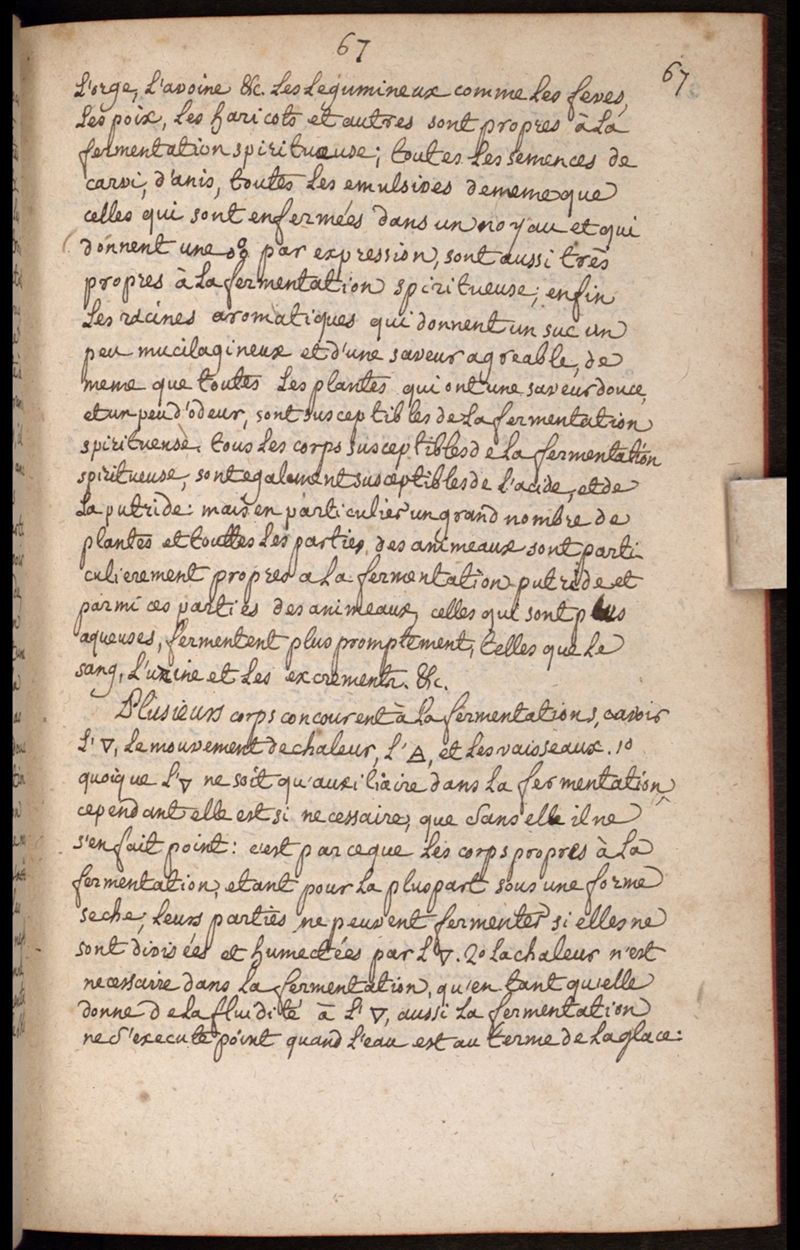 67
67
L'orge, L'avoine &c. Les Legumineux comme Les feves,
Les poix, Les haricots et autres sont propres à La
fermentation spiritueuse; toutes Les semences de
carvi, d'anis, toutes Les emulsives de meme que
celles qui sont enfermées dans un noyau et qui
donnent une par expression, sont aussi très
propres à La fermentation spiritueuse; enfin
Les racines aromatiques qui donnent un suc un
peu mucilagineux et d'une saveur agreable, de
meme que toutes Les plantes qui ont une saveur douce,
et un peu d'odeur, sont susceptibles de La fermentation
spiritueuse. tous Les corps susceptibles de La fermentation
spiritueuse, sont egalement susceptibles de L'acide, et de
La putride: mais en particulier un grand nombre de
plantes et touttes Les parties des animeaux sont parti
culierement propres a La fermentation putride et
parmi ces parties des animeaux, celles qui sont plus
aqueuses, fermentent plus promptement, telles que Le
sang, L'urine et Les excrements. &c.
Plusieurs corps concourent à La fermentations, savoir
L' 🜄, Le mouvement de chaleur, L' 🜁, et Les vaisseaux. 1º
quoique L' 🜄 ne soit qu'auxiliaire dans La fermentation,
cependant elle est si necessaire, que sans elle il ne
s'en fait point: c'est parceque Les corps propres à La
fermentation, etant pour La pluspart sous une forme
seche, Leurs parties ne peuvent fermenter si elles ne
sont divisées et humectées par L' 🜄. 2º La chaleur n'est
necessaire dans La fermentation, qu'en tant qu'elle
donne de La fluidité à L' 🜄, aussi La fermentation
ne s'execute point quand L'eau est au terme de La glace: